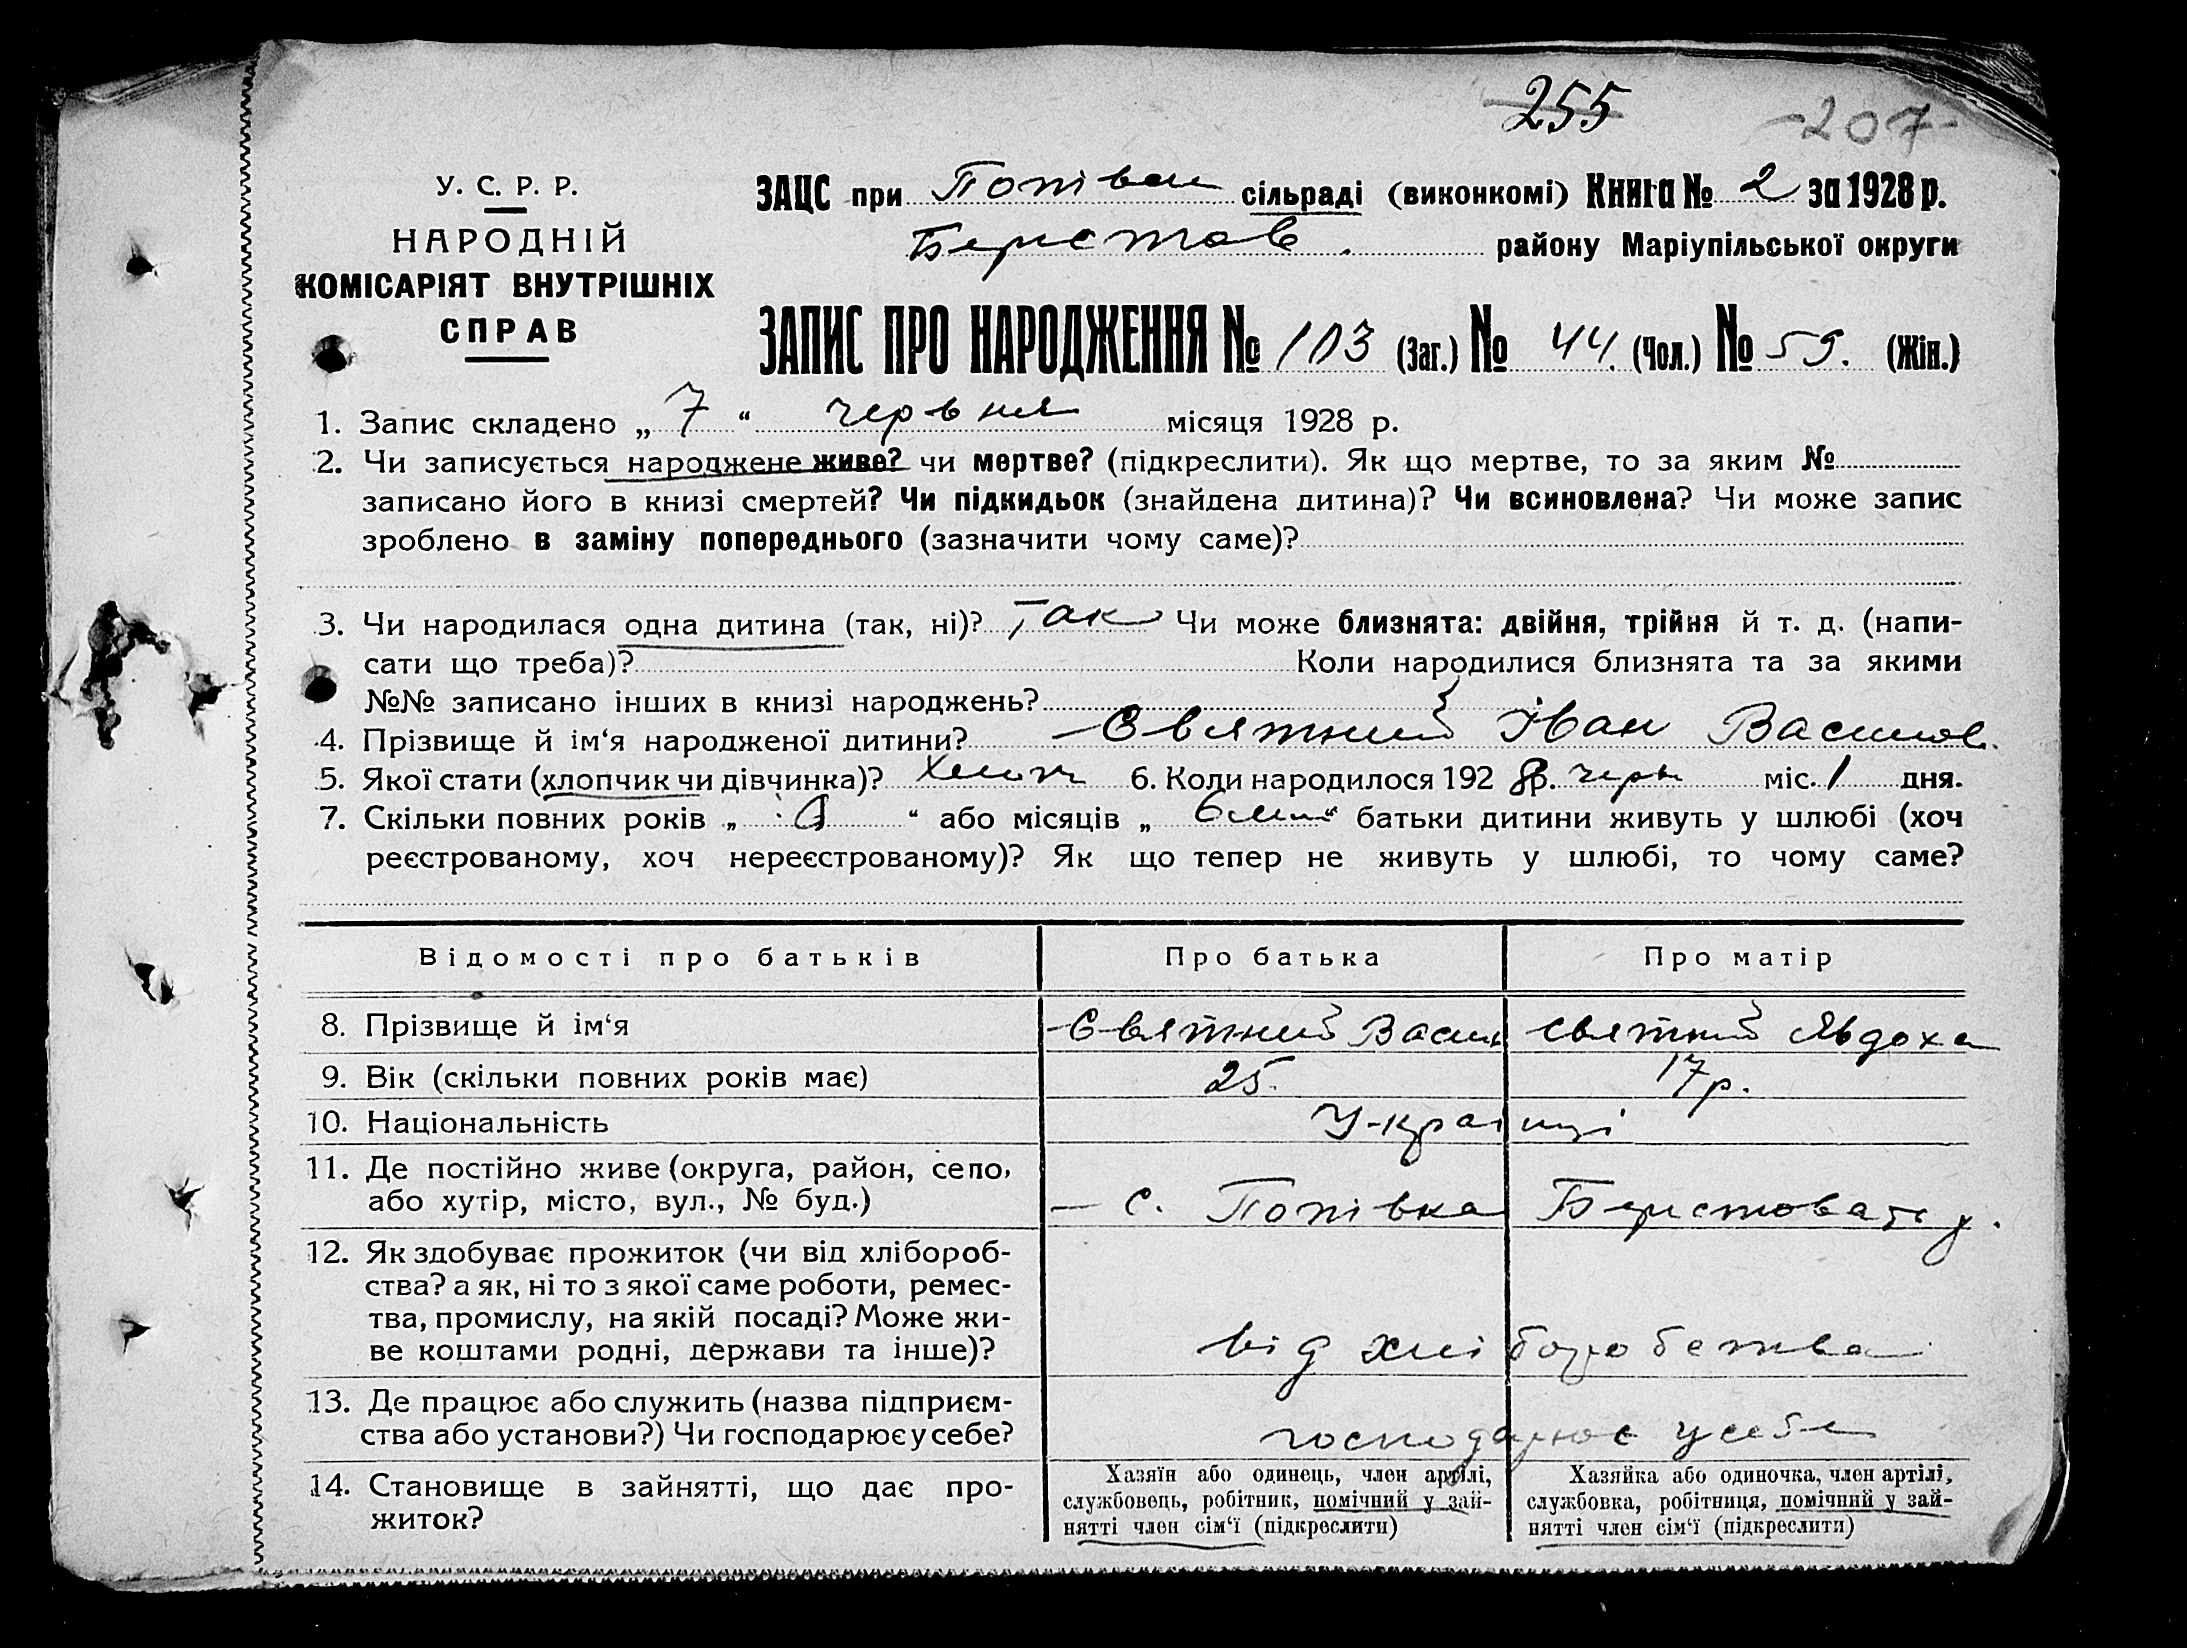 255
-207-
У. С. Р. Р.
НАРОДНІЙ
КОМІСАРІЯТ ВНУТРІШНІХ
СПРАВ
ЗАЦС при Попівск сільраді (виконкомі) Книга № 2 за 1928 р.
Берестов. району Маріупільської округи
ЗАПИС ПРО НАРОДЖЕННЯ № 103 (Заг.) № 44. (Чол.) № 59. (Жін.)
1. Запис складено „ 7 “ червня місяця 1928 р.
2. Чи записується народжене живе? чи мертве? (підкреслити). Як що мертве, то за яким №
записано його в книзі смертей? Чи підкидьок (знайдена дитина)? Чи всиновлена? Чи може запис
зроблено в заміну попереднього (зазначити чому саме)?
3. Чи народилася одна дитина (так, ні)? Так Чи може близнята: двійня, трійня й т. д. (напи-
сати що треба)? Коли народилися близнята та за якими
№№ записано інших в книзі народжень?
4. Прізвище й ім‘я народженої дитини? Святний Іван Васильов.
5. Якої стати (хлопчик чи дівчинка)? Хлопч 6. Коли народилося 192 8 р. черв міс. 1 дня.
7. Скільки повних років „ “ або місяців „ 6 “ батьки дитини живуть у шлюбі (хоч
реєстрованому, хоч нереєстрованому)? Як що тепер не живуть у шлюбі, то чому саме?
Відомості про батьків Про батька Про матір
8. Прізвище й ім‘я Святний Василь Святний Явдоха
9. Вік (скільки повних років має) 25. 17 р.
10. Національність Українці
11. Де постійно живе (округа, район, село,
або хутір, місто, вул., № буд.) – с. Попівка Берестоватс р.
12. Як здобуває прожиток (чи від хлібороб-
ства? а як, ні то з якої саме роботи, ремес-
тва, промислу, на якій посаді? Може жи-
ве коштами родні, держави та інше)? від хліборобства
13. Де працює або служить (назва підприєм-
ства або установи?) Чи господарює у себе? господарює у себе
14. Становище в зайнятті, що дає про-
житок?
Хазяїн або одинець, член артілі,
службовець, робітник, помічний у зай-
нятті член сім‘ї (підкреслити)
Хазяйка або одиночка, член артілі,
службовка, робітниця, помічний у зай-
нятті член сім‘ї (підкреслити)